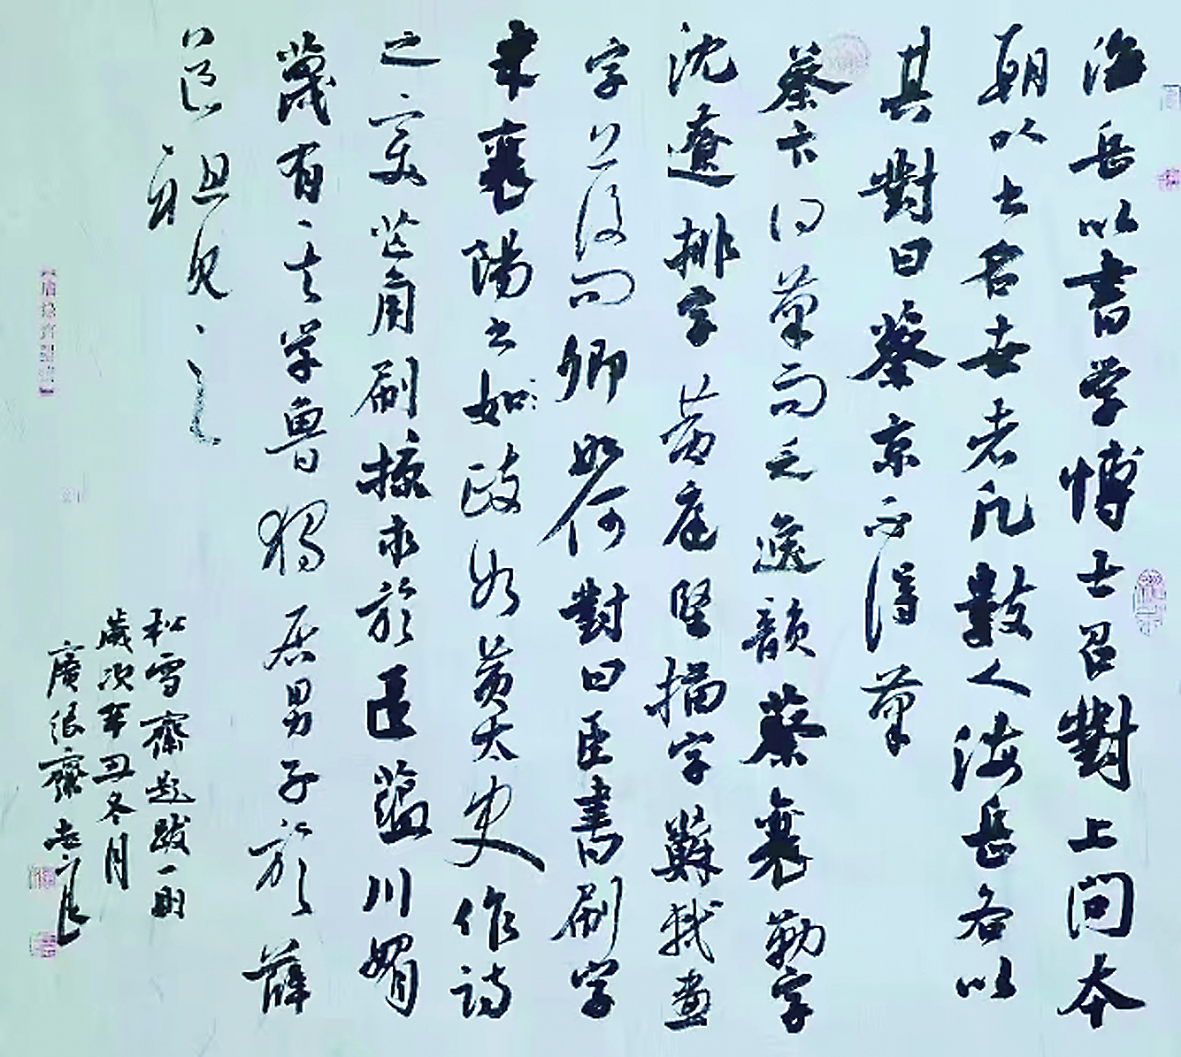 海岳以書学博士召對上問本
朝以書名世者凡數人海岳各以
其對曰蔡京不得筆
蔡卞得筆而乏逸韻蔡襄勒字
沈遼排字黃庭堅描字蘇軾畫
字上復問卿如何對曰臣書刷字
米襄陽書如政如黃太史作詩
之變芒角刷掠求於匡蘊川媚
蔑有其学魯獨居男子於薛
道祖見之
松雪齋題跋一則
歲次辛丑冬月
廣很齋志良